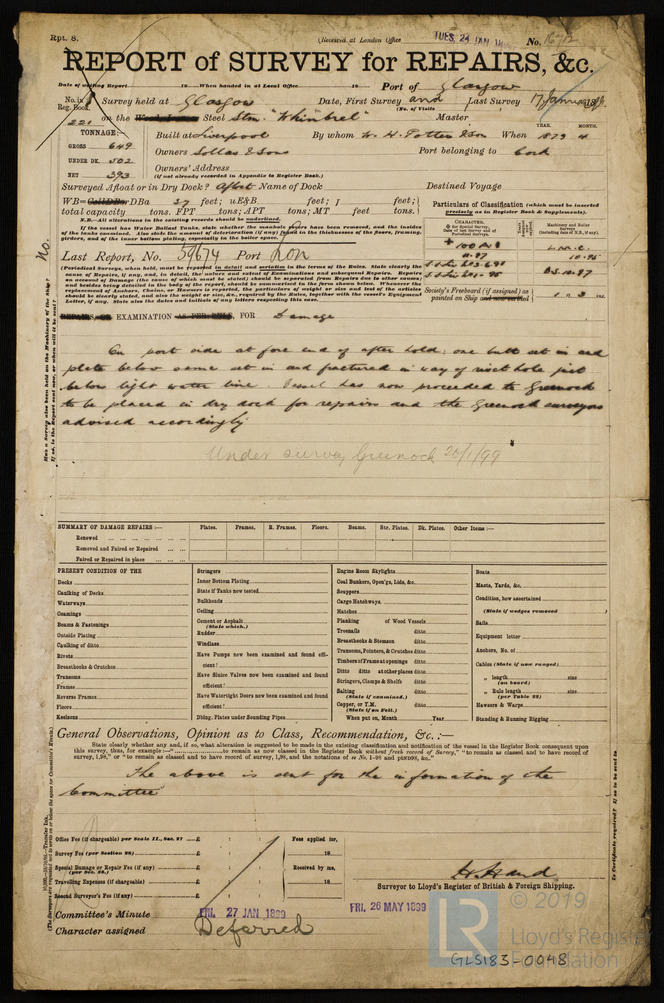 Rpt. 8.
(Received at London Office
TUES. 24 JAN 18
No. 16712
REPORT of SURVEY for REPAIRS, &c.
Date of writing Report 18 When handed in at Local Office 18 Port of Glasgow
No. in Reg. Book. Survey held at Glasgow Date, First Survey and Last Survey 17 January 1899
(No. of Visits
221 on the Wood, Iron or Steel Stmr "Whimbrel" Master
TONNAGE:—
GROSS 649
UNDER DK. 502
NET 393
YEAR. MONTH.
Built at Liverpool By whom W. H. Potter & Son When 1879 4
Owners Sollas & Sons Port belonging to Cork
Owners' Address
(If not already recorded in Appendix to Register Book.)
Surveyed Afloat or in Dry Dock? Afloat Name of Dock Destined Voyage
WB= CellDBor DBa 37 feet; uE&B feet; f feet;
total capacity tons. FPT tons; APT tons; MT feet tons.
N.B.—All alterations in the existing records should be underlined.
If the vessel has Water Ballast Tanks, state whether the manhole covers have been removed, and the insides
of the tanks examined. Also state the amount of deterioration (if any) found in the thicknesses of the floors, framing,
girders, and of the inner bottom plating, especially in the boiler space.
Particulars of Classification (which must be inserted
precisely as in Register Book & Supplements).
CHARACTER.
Machinery and Boiler Surveys
+ 100 A1
10.97
L.M.C.
10.95
B.S. 10.97
Last Report, No. 59674 Port Lon
(Periodical Surveys, when held, must be reported in detail and seriatim in the terms of the Rules. State clearly the
Society's Freeboard (if assigned) as
painted on Ship and now verified
REPAIRS, OR EXAMINATION AS PER RULE, FOR Damage
On port side at fore end of after hold; one butt set in and
plate below same set in and fractured in way of rivet hole just
below light water line. Vessel has now proceeded to Greenock
to be placed in dry dock for repairs and the Greenock surveyors
advised accordingly
Under survey Greenock 20/1/99
Has a Survey also been held on the Machinery of the Ship?
If so, is the Report sent now, or when will it be sent?
No.
SUMMARY OF DAMAGE REPAIRS:— Plates. Frames. R. Frames. Floors. Beams. Str. Plates. Dk. Plates. Other Items:—
Renewed
Removed and Faired or Repaired
Faired or Repaired in place
PRESENT CONDITION OF THE
Decks
Caulking of Decks
Waterways
Coamings
Beams & Fastenings
Outside Plating
Caulking of ditto
Rivets
Breasthooks & Crutches
Transoms
Frames
Reverse Frames
Floors
Keelsons
Stringers
Inner Bottom Plating
State if Tanks now tested
Bulkheads
Ceiling
Cement or Asphalt
(State which.)
Rudder
Windlass
Have Pumps now been examined and found effi-
cient?
Have Sluice Valves now been examined and found
efficient?
Have Watertight Doors now been examined and found
efficient?
Dblng. Plates under Sounding Pipes
Engine Room Skylights
Coal Bunkers, Open'gs, Lids, &c.
Scuppers
Cargo Hatchways
Hatches
Planking of Wood Vessels
Treenails ditto
Breasthooks & Stemson ditto
Transoms, Pointers, & Crutches ditto
Timbers of Frame at openings ditto
Ditto ditto at other places ditto
Stringers, Clamps & Shelfs ditto
Salting ditto
(State if examined.)
Copper, or Y.M.
(State if on Felt.)
When put on, Month Year
Boats
Masts, Yards, &c.
Condition, how ascertained
(State if wedges removed )
Sails
Equipment letter
Anchors, No. of
Cables (State if now ranged)
„ length size
(on board)
„ Rule length size
(per Table 22)
Hawsers & Warps
Standing & Running Rigging
General Observations, Opinion as to Class, Recommendation, &c.:—
State clearly whether any and, if so, what alteration is suggested to be made in the existing classification and notification of the vessel in the Register Book consequent upon
this survey, thus, for example:—" to remain as now classed in the Register Book without fresh record of Survey," "to remain as classed and to have record of
survey, 1,98," or "to remain as classed and to have record of survey, 1,98, and the notations of
The above is sent for the information of the
Committee
Office Fee (if chargeable) per Scale II., Sec. 27 £ : :
Survey Fee (per Section 28) £ : :
Special Damage or Repair Fee (if any)
(per Sec. 28.) £ : :
Travelling Expenses (if chargeable) £ : :
Second Surveyor's Fee (if any) £ : :
Fees applied for,
18
Received by me,
18
Surveyor to Lloyd's Register of British & Foreign Shipping.
Committee's Minute FRI. 27 JAN 1899 FRI. 26 MAY 1899
Character assigned Deferred
© 2019
LR
Lloyd's Register
Foundation
GLS183-0048